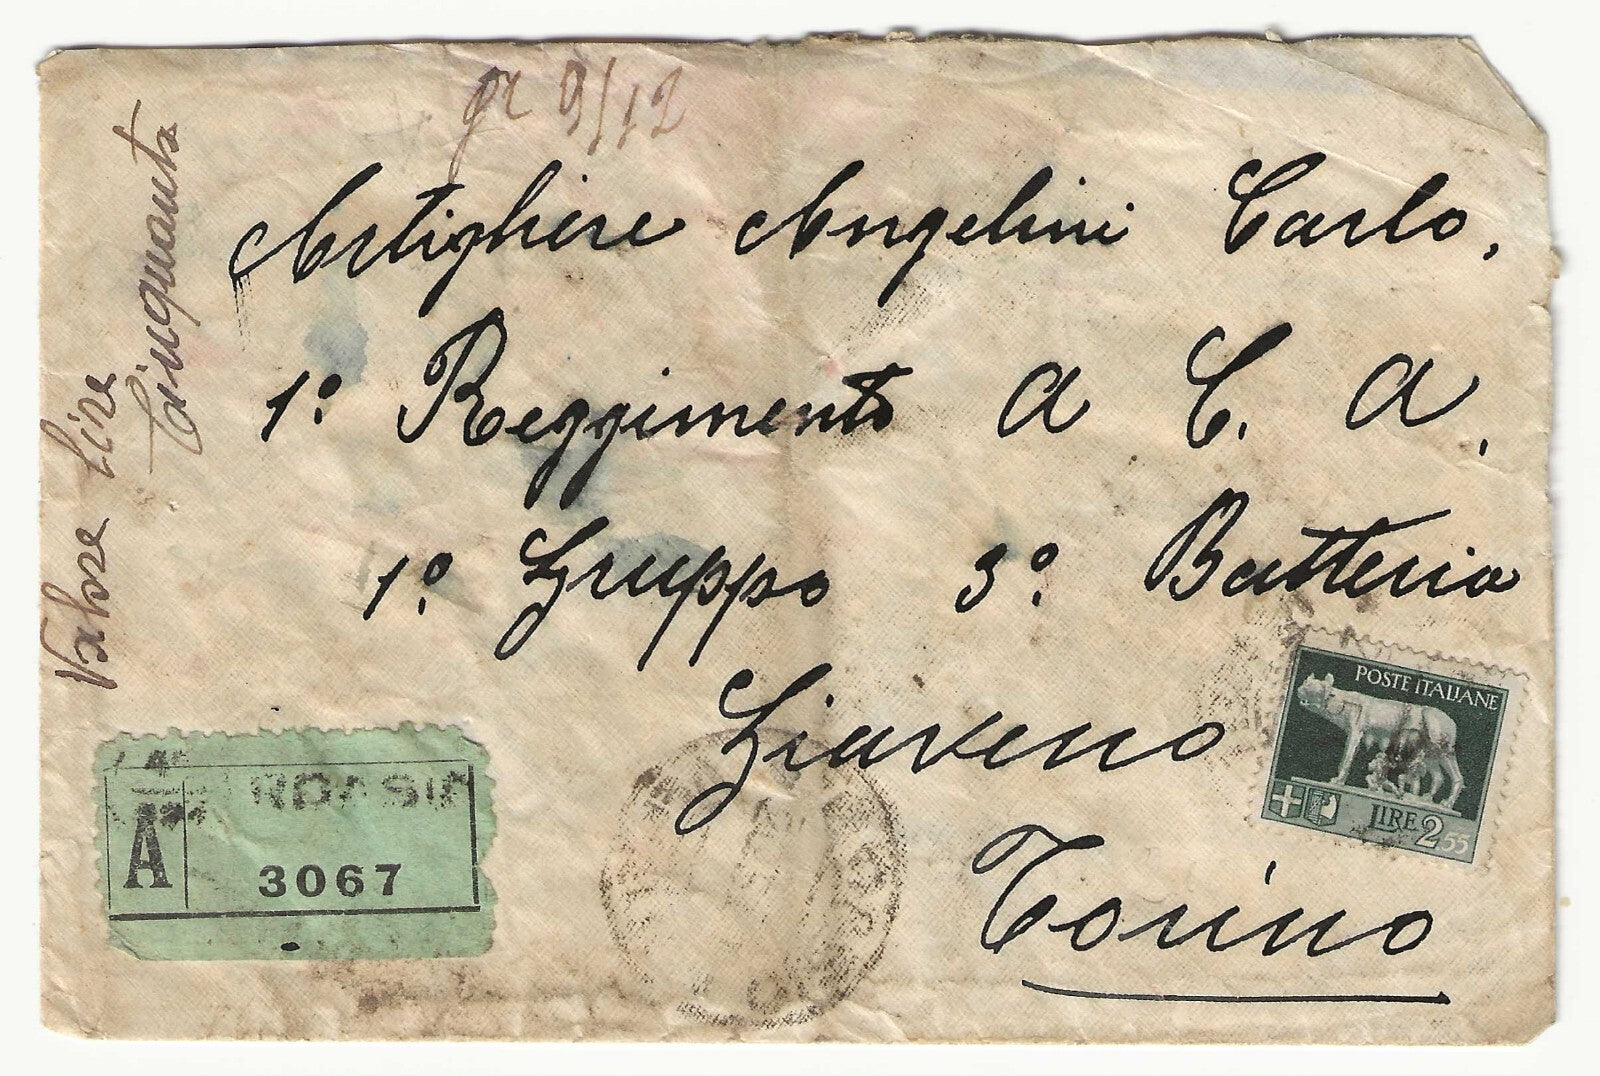 gr 9/12
Valore Lire
Cinquanta
Artighiere Angelini Carlo,
1º Reggimento A C. A.
1º Gruppo 3º Batteria
Giaveno
Torino
POSTE ITALIANE
LIRE 2,55
A
3067